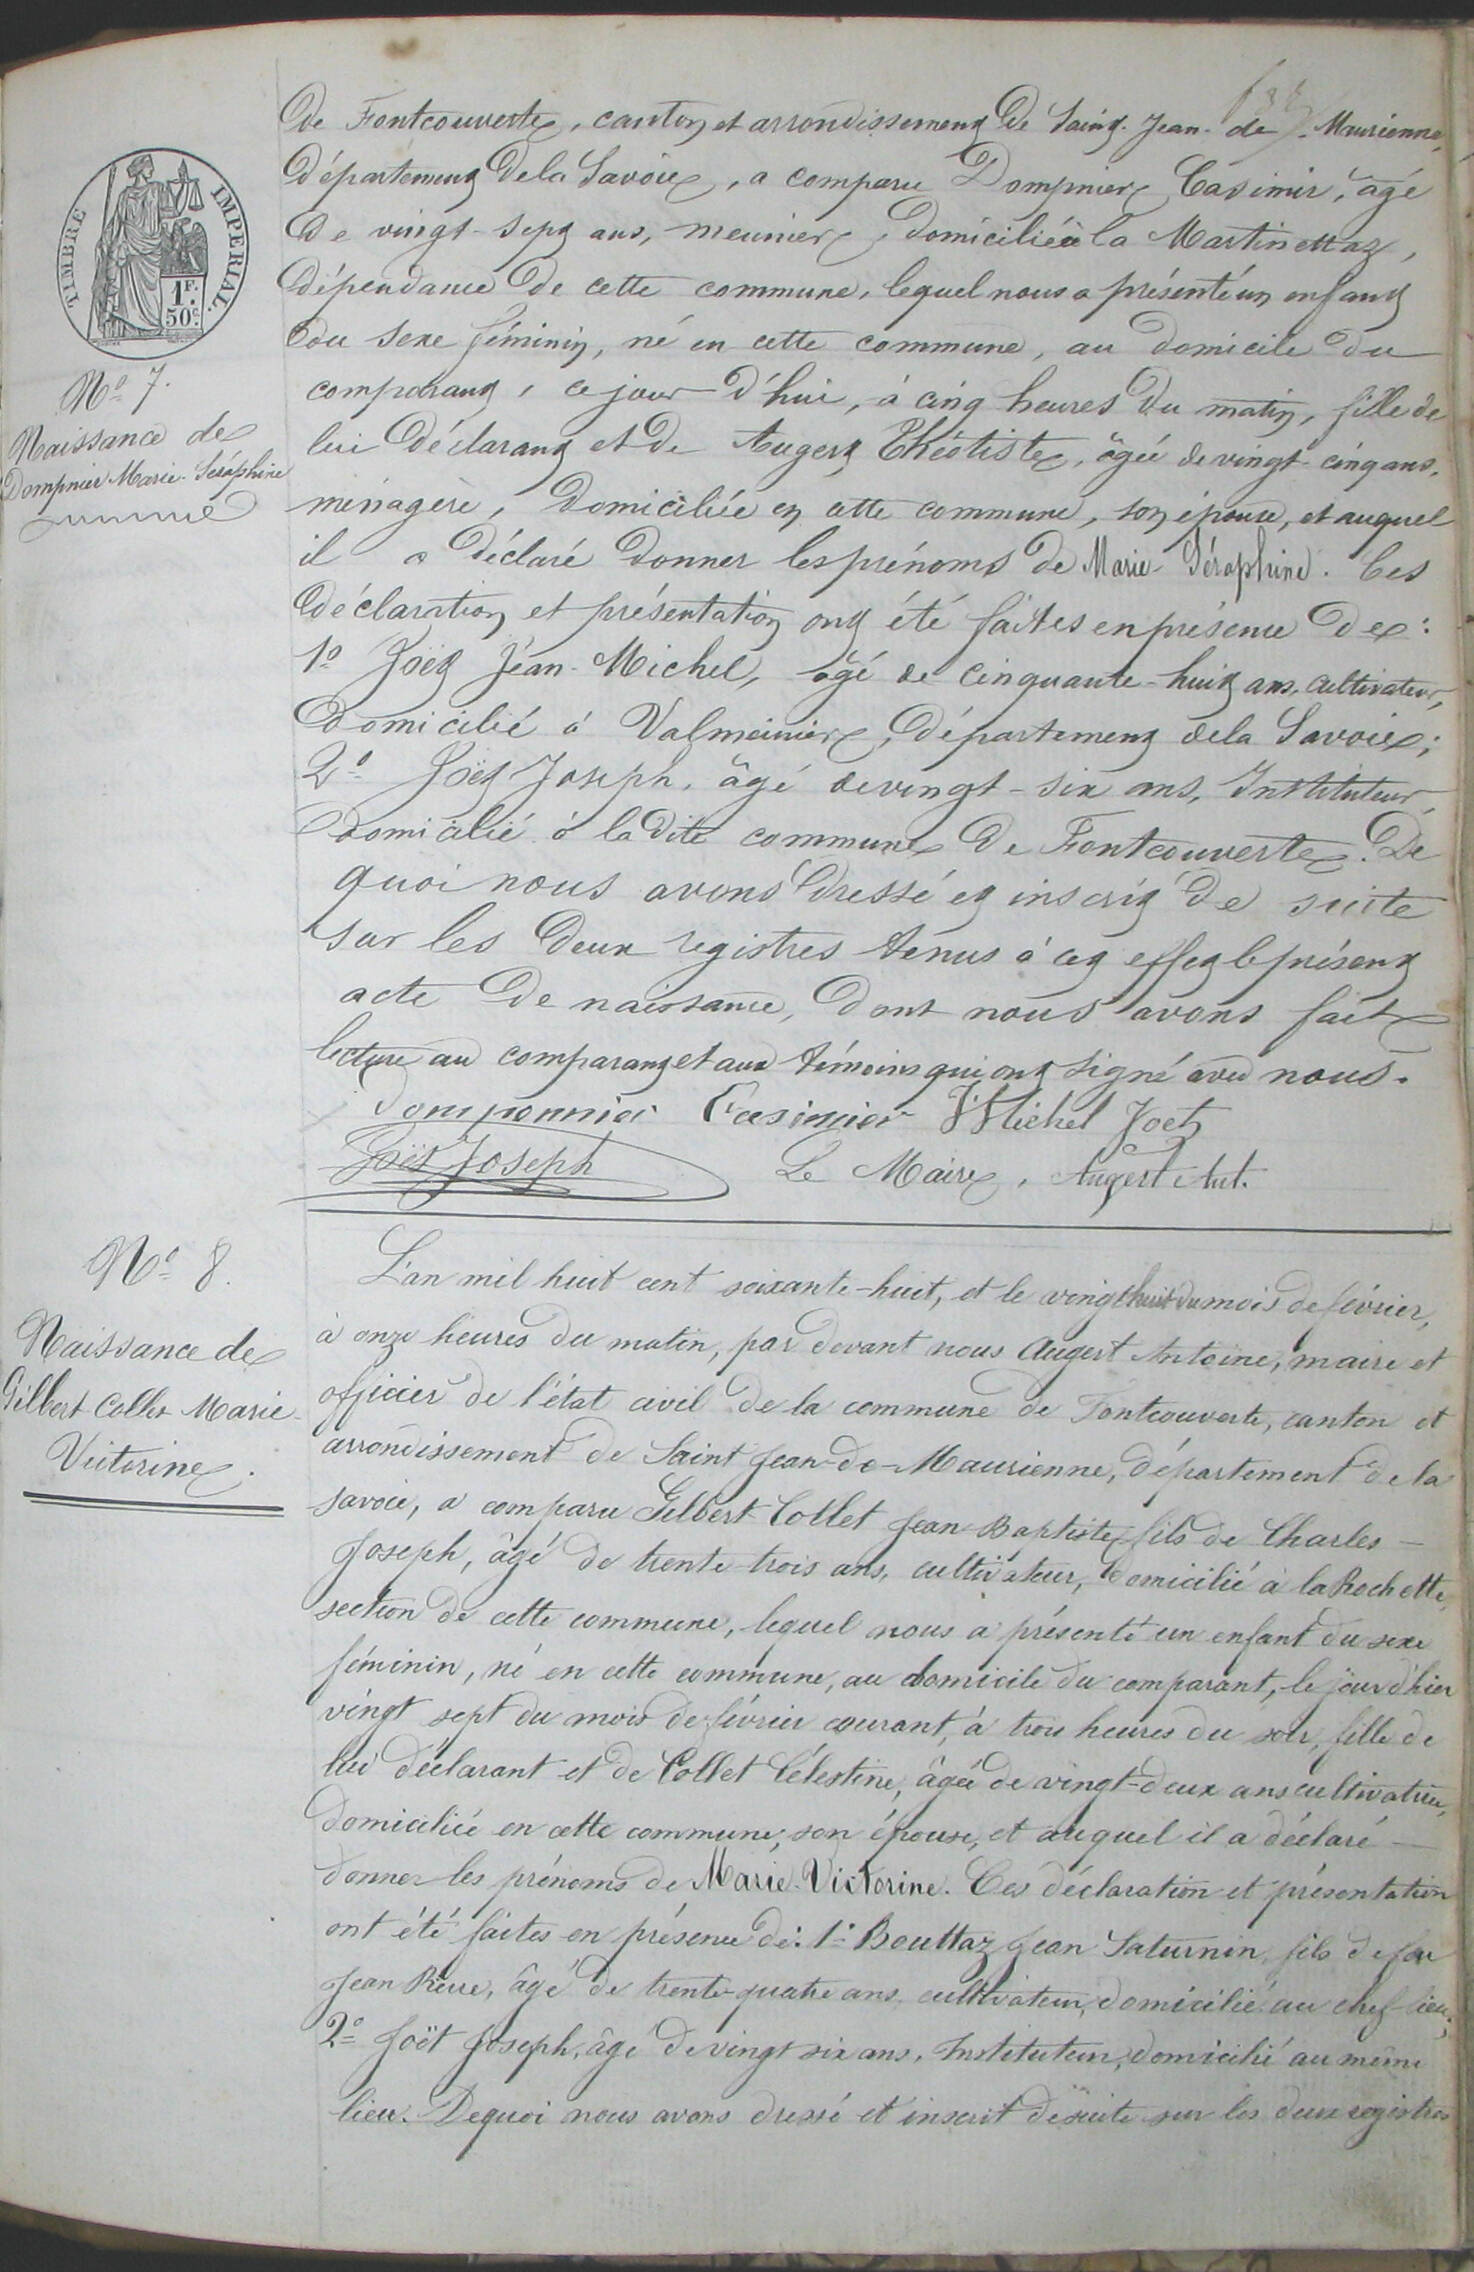 de Fontcouverte, canton et arrondissement de Saint-Jean-de-Maurienne,
département de la Savoie, a comparu Dompnier Casimir, âgé
de vingt-sept ans, meunier, domicilié à la Martinettaz,
dépendance de cette commune, lequel nous a présenté un enfant
du sexe féminin, né en cette commune, au domicile du
comparant, ce jour d'hui, à cinq heures du matin, fille de
lui déclarant et de Augert Théotiste, âgée de vingt-cinq ans,
ménagère, domiciliée en cette commune, son épouse, et auquel
il a déclaré donner les prénoms de Marie-Séraphine. Ces
déclaration et présentation ont été faites en présence de :
1º Joët Jean-Michel, âgé de cinquante-huit ans, cultivateur,
domicilié à Valmeinier, département de la Savoie;
2º Joët Joseph, âgé de vingt-six ans, Instituteur,
domicilié à la dite commune de Fontcouverte. De
quoi nous avons dressé et inscrit de suite
sur les deux registres tenus à cet effet le présent
acte de naissance, dont nous avons fait
lecture au comparant et aux témoins qui ont signé avec nous.
Domponnier Casimier Michel Joet
Joët Joseph Le Maire, Augert Ant.
TIMBRE IMPERIAL.
1F.
50c.
Nº 7.
Naissance de
Dompnier Marie-Séraphine
Nº 8.
Naissance de
Gilbert Collet Marie-
Victorine.
L'an mil huit cent soixante-huit, et le vingt huit du mois de février,
à onze heures du matin, par devant nous Augert Antoine, maire et
officier de l'état civil de la commune de Fontcouverte, canton et
arrondissement de Saint Jean-de-Maurienne, département de la
savoie, a comparu Gilbert-Collet Jean-Baptiste fils de Charles-
Joseph, âgé de trente-trois ans, cultivateur, domicilié à la Rochette,
section de cette commune, lequel nous a présenté un enfant du sexe
féminin, né en cette commune, au domicile du comparant, le jour d'hier
vingt sept du mois de février courant, à trois heures du soir, fille de
lui déclarant et de Collet Célestine, âgée de vingt-deux ans cultivatrice,
domiciliée en cette commune, son épouse, et auquel il a déclaré
donner les prénoms de Marie-Victorine. Ces déclaration et présentation
ont été faites en présence de : 1º Bouttaz Jean Saturnin, fils de feu
Jean Pierre, âgé de trente-quatre ans, cultivateur, domicilié au chef-lieu;
2º Joët Joseph, âgé de vingt six ans, Instituteur, domicilié au même
lieu. De quoi nous avons dressé et inscrit de suite sur les deux registres